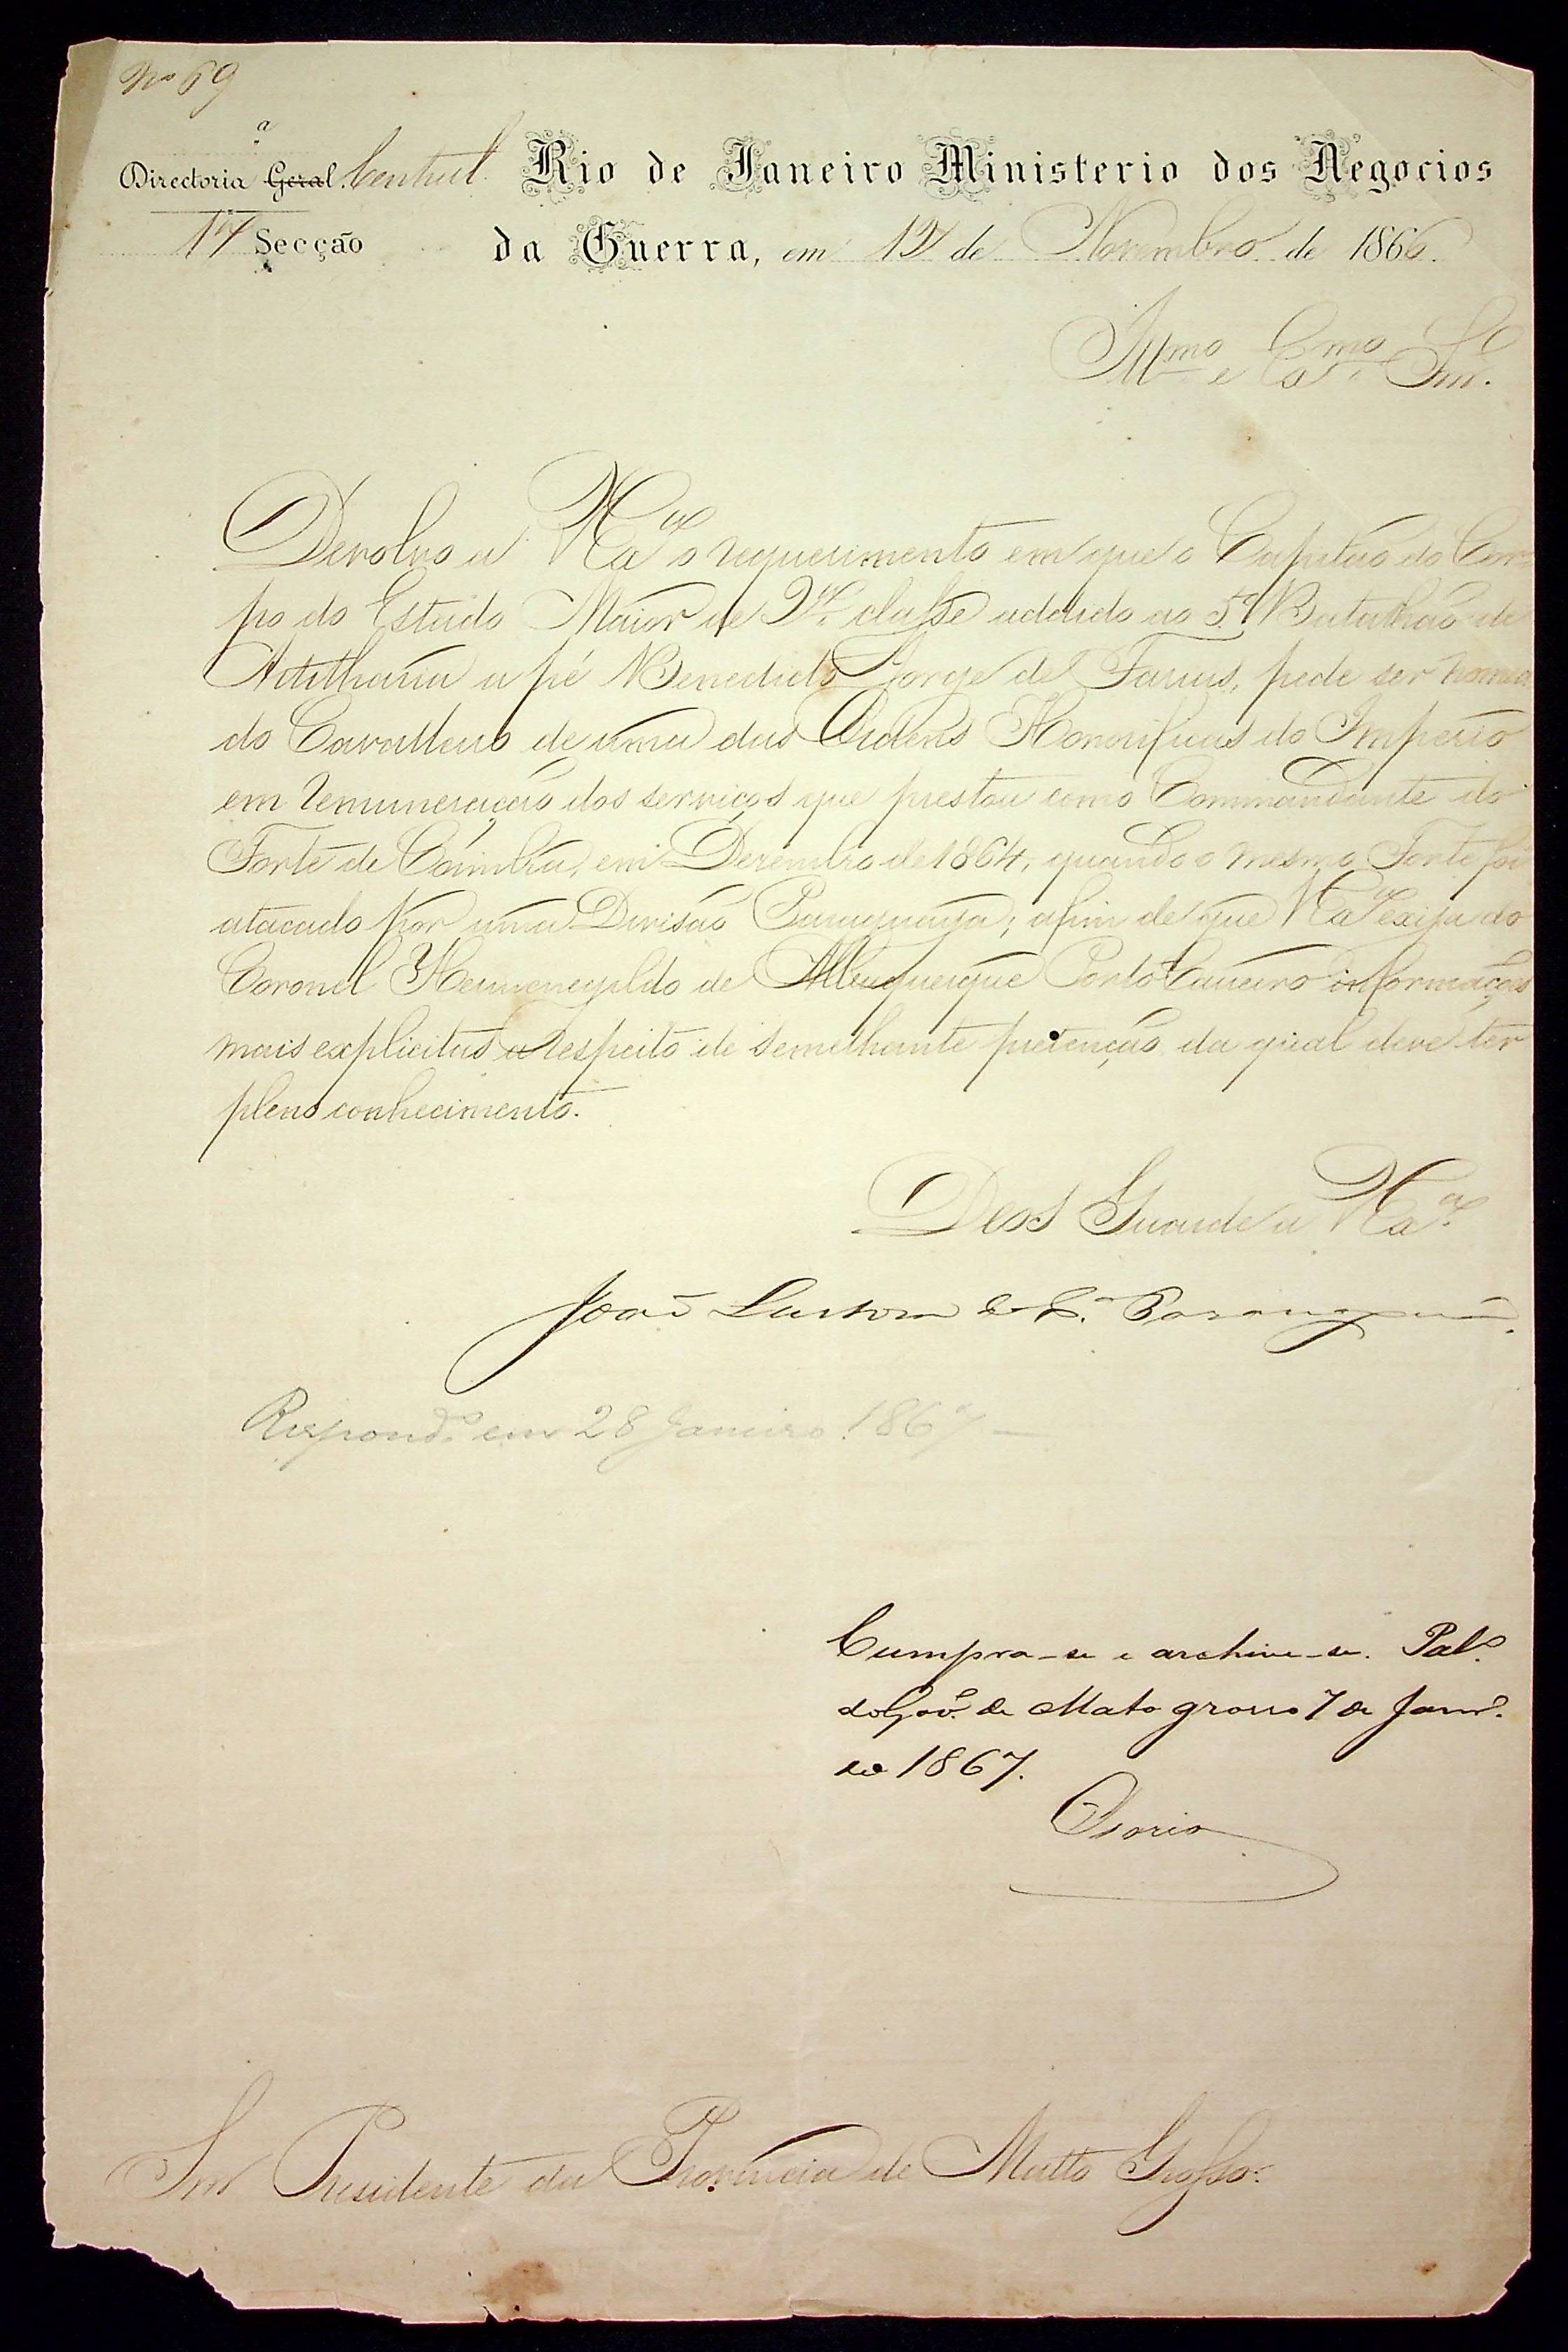 Nº 69
Directoria Geral Central Rio de Janeiro Ministerio dos Negocios
1ª Secção da Guerra, em 12 de Novembro de 1866.
Illmo e Exmo Snr.
Devolvo a V Exª o requerimento em que o Capitão do Cor-
po do Estado Maior de 2ª classe addido ao 5º Batalhão de
Artilharia a pé Benedicto Jorge de Farias, pede ser nomea
do Cavalleiro de uma das Ordens Honorificas do Imperio
em remuneração dos serviços que prestou como Commandante do
Forte de Coimbra, em Dezembro de 1864, quando o mesmo Forte foi
atacado por uma Divisão Paraguaya; afim de que V Exª exija do
Coronel Hermenegildo de Albuquerque Porto Carreiro informações
mais explicitas a respeito de semelhante pretenção da qual deve ter
pleno conhecimento.
Deos Guarde a V Exª.
João Lustosa da C.ª Paranaguá.
Respond.º em 28 Janeiro 1867 —
Cumpra-se e archive-se. Palº.
do Govº. de Mato grosso 7 de Janrº.
de 1867.
Osorio
Snr Presidente da Provincia de Matto Grosso.